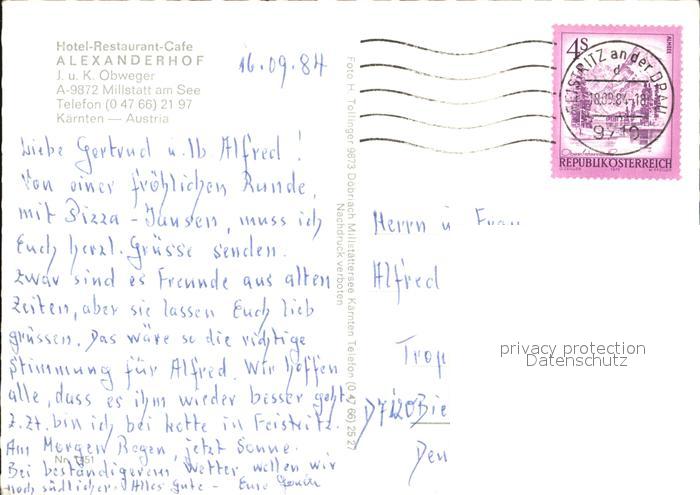 Hotel-Restaurant-Cafe
ALEXANDERHOF
J. u. K. Obweger
A-9872 Millstatt am See
Telefon (0 47 66) 21 97
Kärnten — Austria
16.09.84
Liebe Gertrud u. lb Alfred!
Von einer fröhlichen Runde,
mit Pizza-Jausen, muss ich
Euch herzl. Grüsse senden.
Zwar sind es Freunde aus alten
Zeiten, aber sie lassen Euch lieb
grüssen. Das wäre so die richtige
Stimmung für Alfred. Wir hoffen
alle, dass es ihm wieder besser geht.
z.Zt. bin ich bei in Feistritz.
Am Morgen Regen, jetzt Sonne.
Bei beständigerem Wetter wollen wir
noch südlicher. Alles Gute - Eure
Nr. 1251
Foto H. Tollinger 9873 Döbriach Millstättersee Kärnten Telefon (0 47 66) 25 27
Nachdruck verboten
4S
ALMSEE
FEISTRITZ an der DRAU
18.09.84-18
9710
REPUBLIK ÖSTERREICH
Herrn u Frau
Alfred
Trop
D7120 Bie
Den
privacy protection
Datenschutz